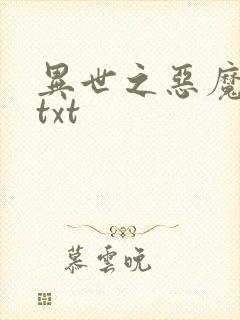 異世之惡魔
txt
慕雲晚